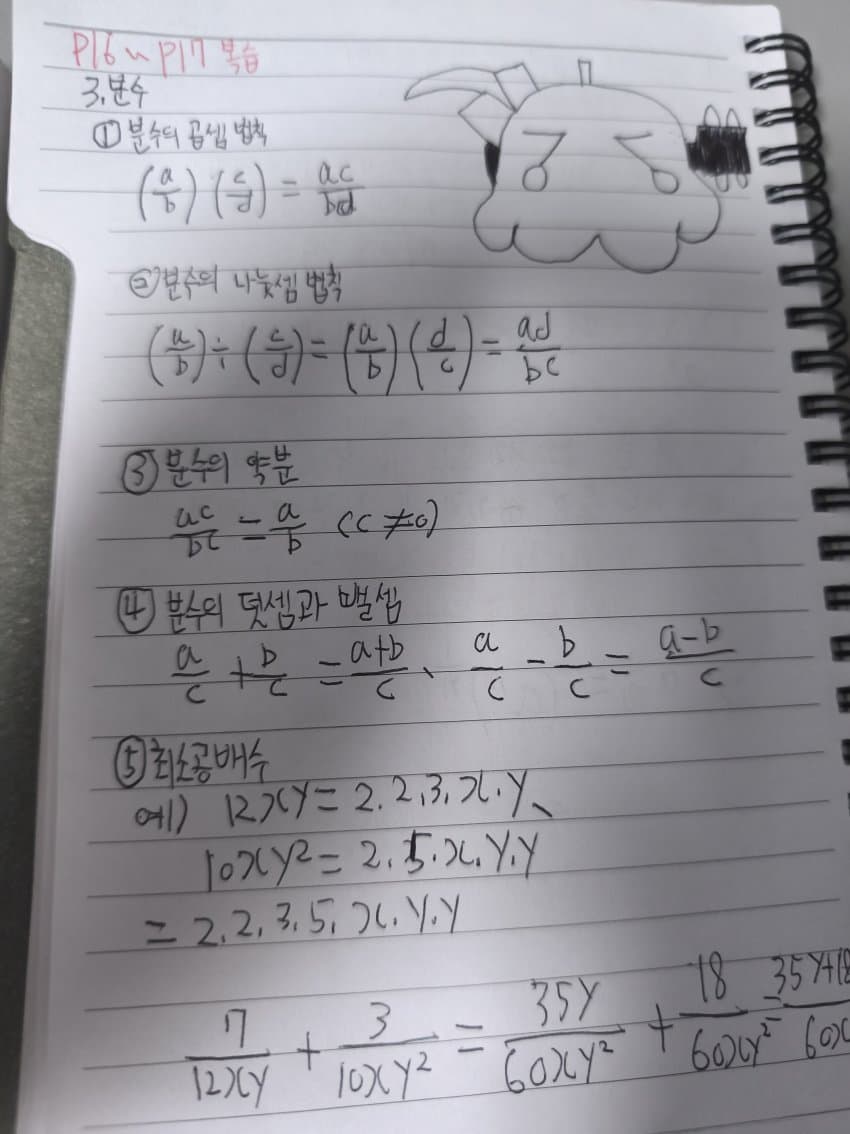 P16~P17 복습
3. 분수
① 분수의 곱셈 법칙
(a/b) (c/d) = ac/bd
② 분수의 나눗셈 법칙
(a/b) ÷ (c/d) = (a/b) (d/c) = ad/bc
③ 분수의 약분
ac/bc = a/b (c ≠ 0)
④ 분수의 덧셈과 뺄셈
a/c + b/c = a+b/c、 a/c - b/c = a-b/c
⑤ 최소공배수
예) 12xy = 2.2.3.x.y、
10xy² = 2.5.x.y.y
= 2.2.3.5.x.y.y
7/12xy + 3/10xy² = 35y/60xy² + 18/60xy² = 35y+18/60x